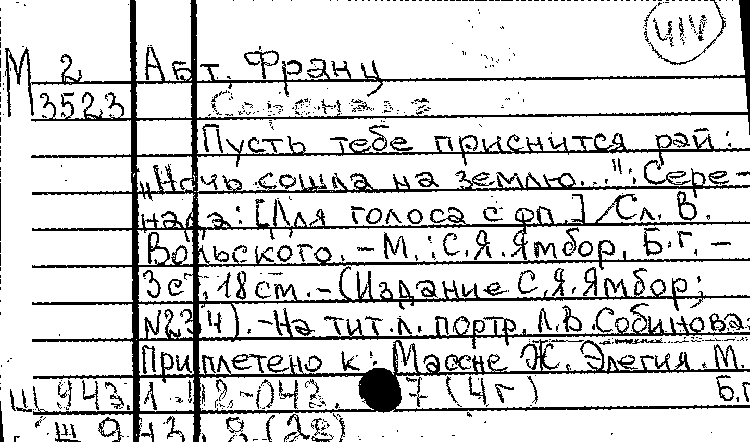 ЧIV
М 2 Абт, Франц
13523 Серенада
Пусть тебе приснится рай:
„Ночь сошла на землю...": Сере-
нада: [Для голоса с фп.] / Сл. В.
Вольского. – М.: С.Я. Ямбор, Б.г. –
3 с.; 18 см. – (Издание С.Я. Ямбор;
№234). – На тит.л. портр. Л.В. Собинова.
Приплетено к: Массне Ж. Элегия. М.
Б.г.
Ш 943.1 7 (4г)
Ш 943.8 (2г)